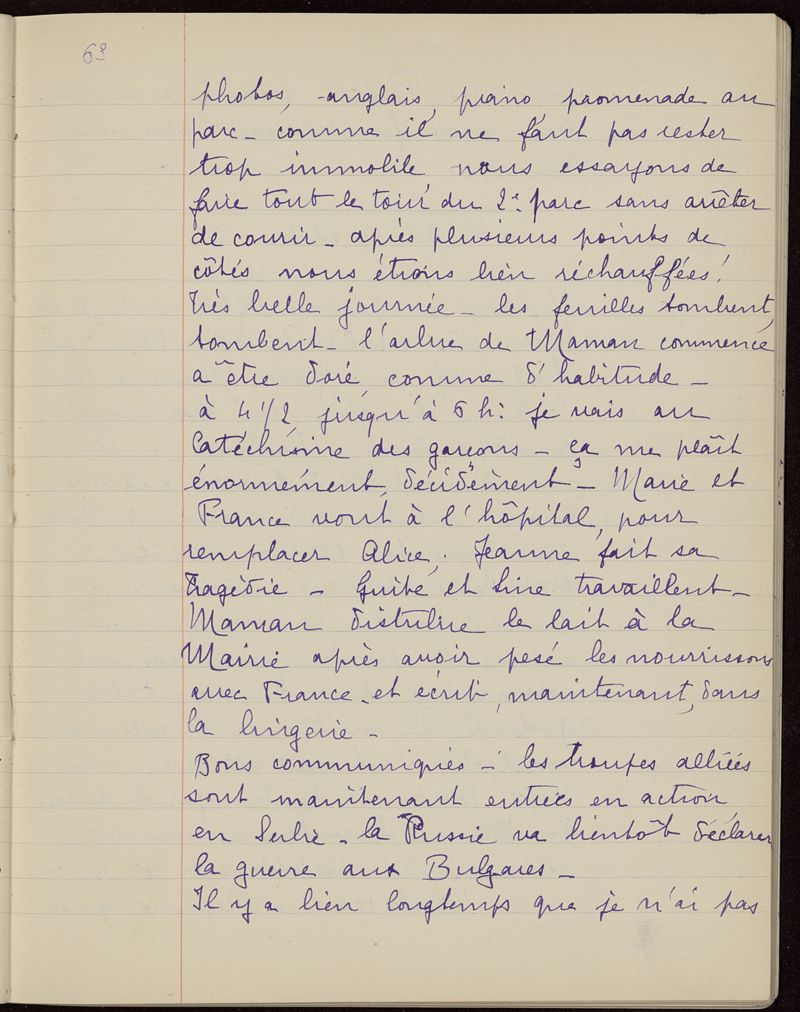 69
photos, anglais, piano promenade au
parc - comme il ne faut pas rester
trop immobile nous essayons de
faire tout le tour du 2e parc sans arrêter
de courir - après plusieurs points de
côtés nous étions bien réchauffées!
Très belle journée - les feuilles tombent,
tombent - l'arbre de Maman commence
a être doré, comme d'habitude -
à 4 1/2 jusqu'à 6 h: je vais au
Catéchisme des garçons - ça me plaît
énormément, décidément - Marie et
France vont à l'hôpital, pour
remplacer Alice, Jeanne fait sa
tragédie - Guite et Line travaillent -
Maman distribue le lait à la
Mairie après avoir pesé les nourrissons
avec France - et écrit, maintenant, dans
la lingerie -
Bons communiqués - les troupes alliées
sont maintenant entrées en action
en Serbie - la Russie va bientôt déclarer
la guerre aux Bulgares -
Il y a bien longtemps que je n'ai pas